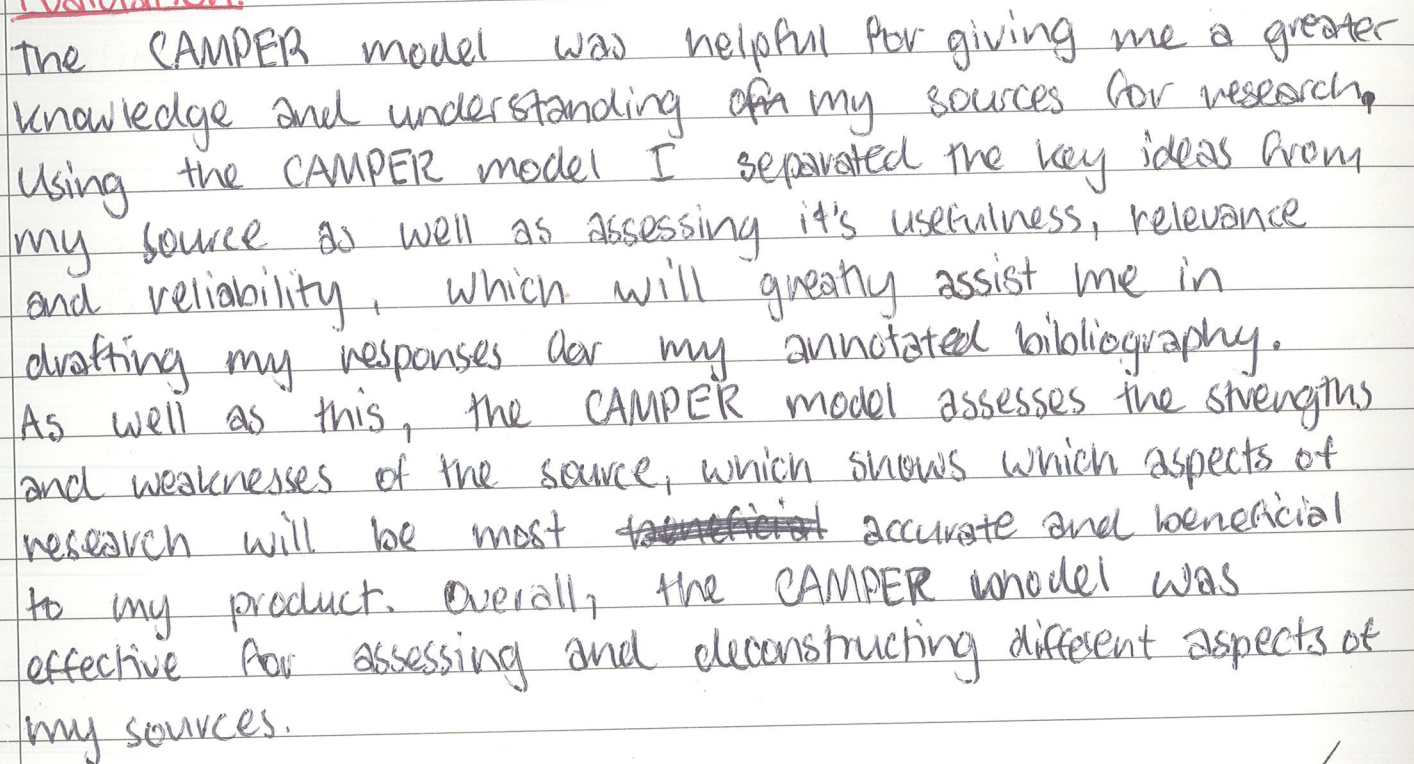 Evaluation:
The CAMPER model was helpful for giving me a greater
knowledge and understanding of my sources for research.
Using the CAMPER model I separated the key ideas from
my source as well as assessing it's usefulness, relevance
and reliability, which will greatly assist me in
drafting my responses for my annotated bibliography.
As well as this, the CAMPER model assesses the strengths
and weaknesses of the source, which shows which aspects of
research will be most accurate and beneficial
to my product. Overall, the CAMPER model was
effective for assessing and deconstructing different aspects of
my sources.